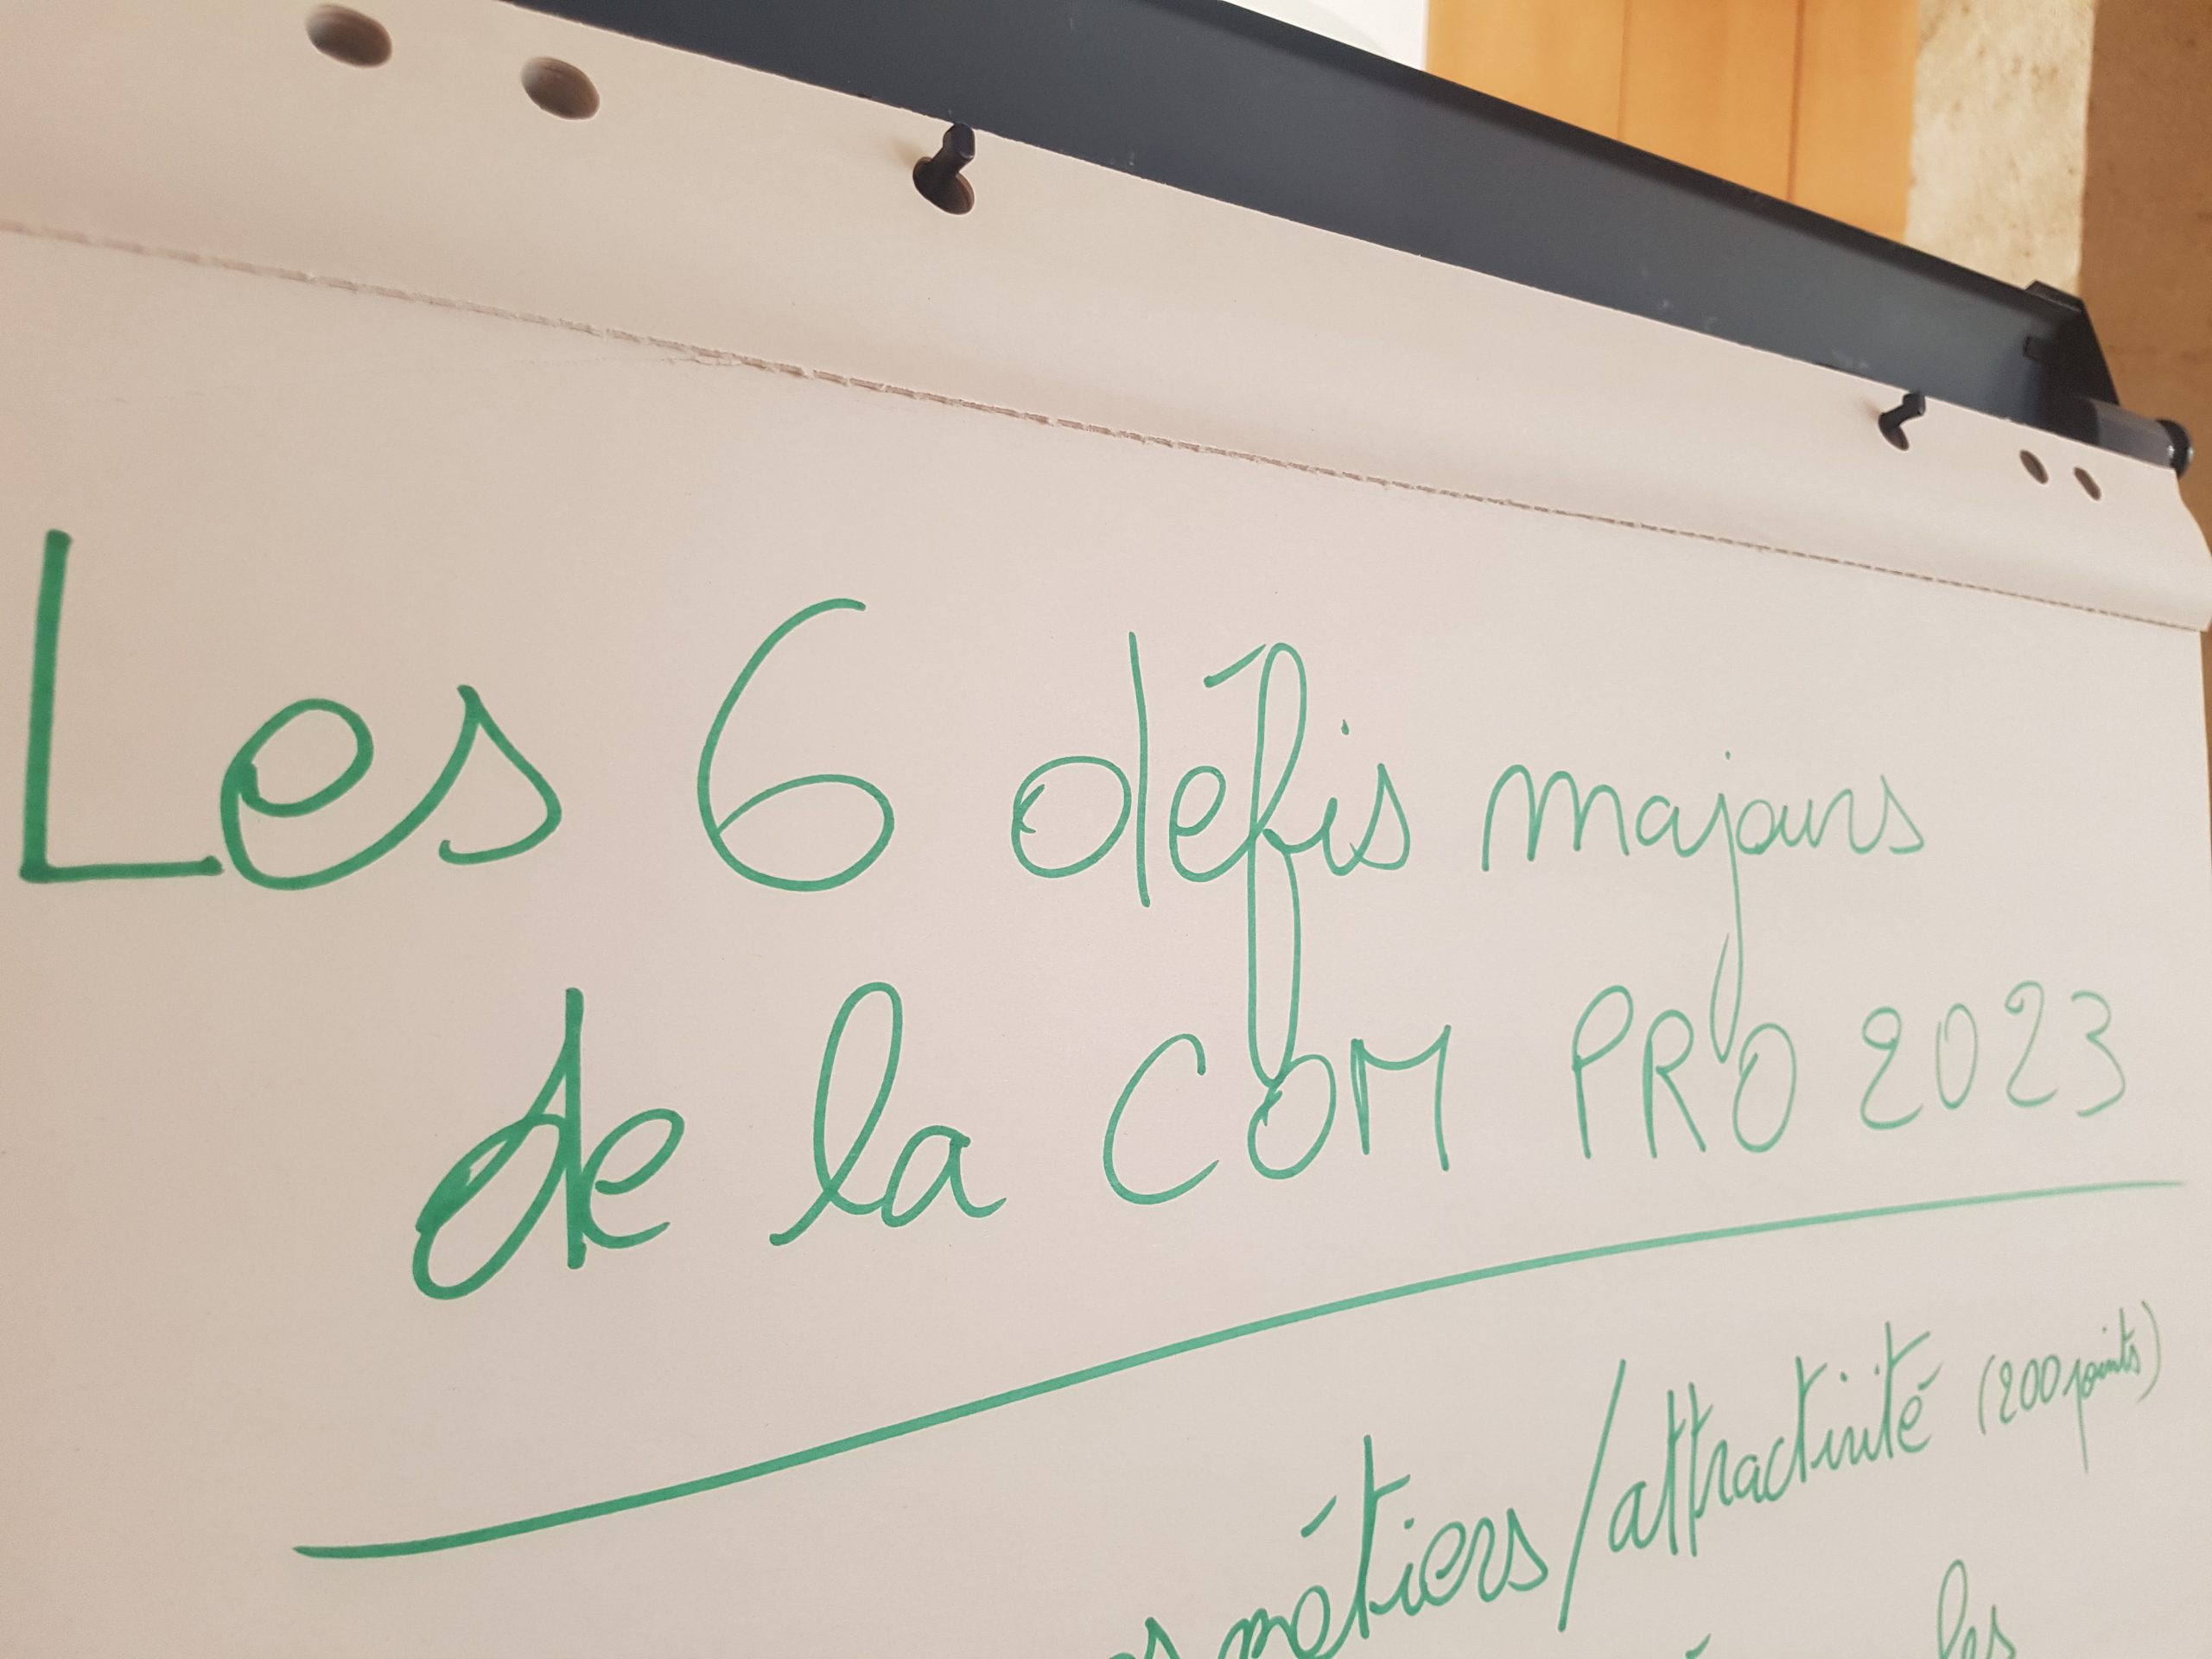 Les 6 défis majeurs
de la COM PRO 2023
métiers/attractivité (200 points)
les